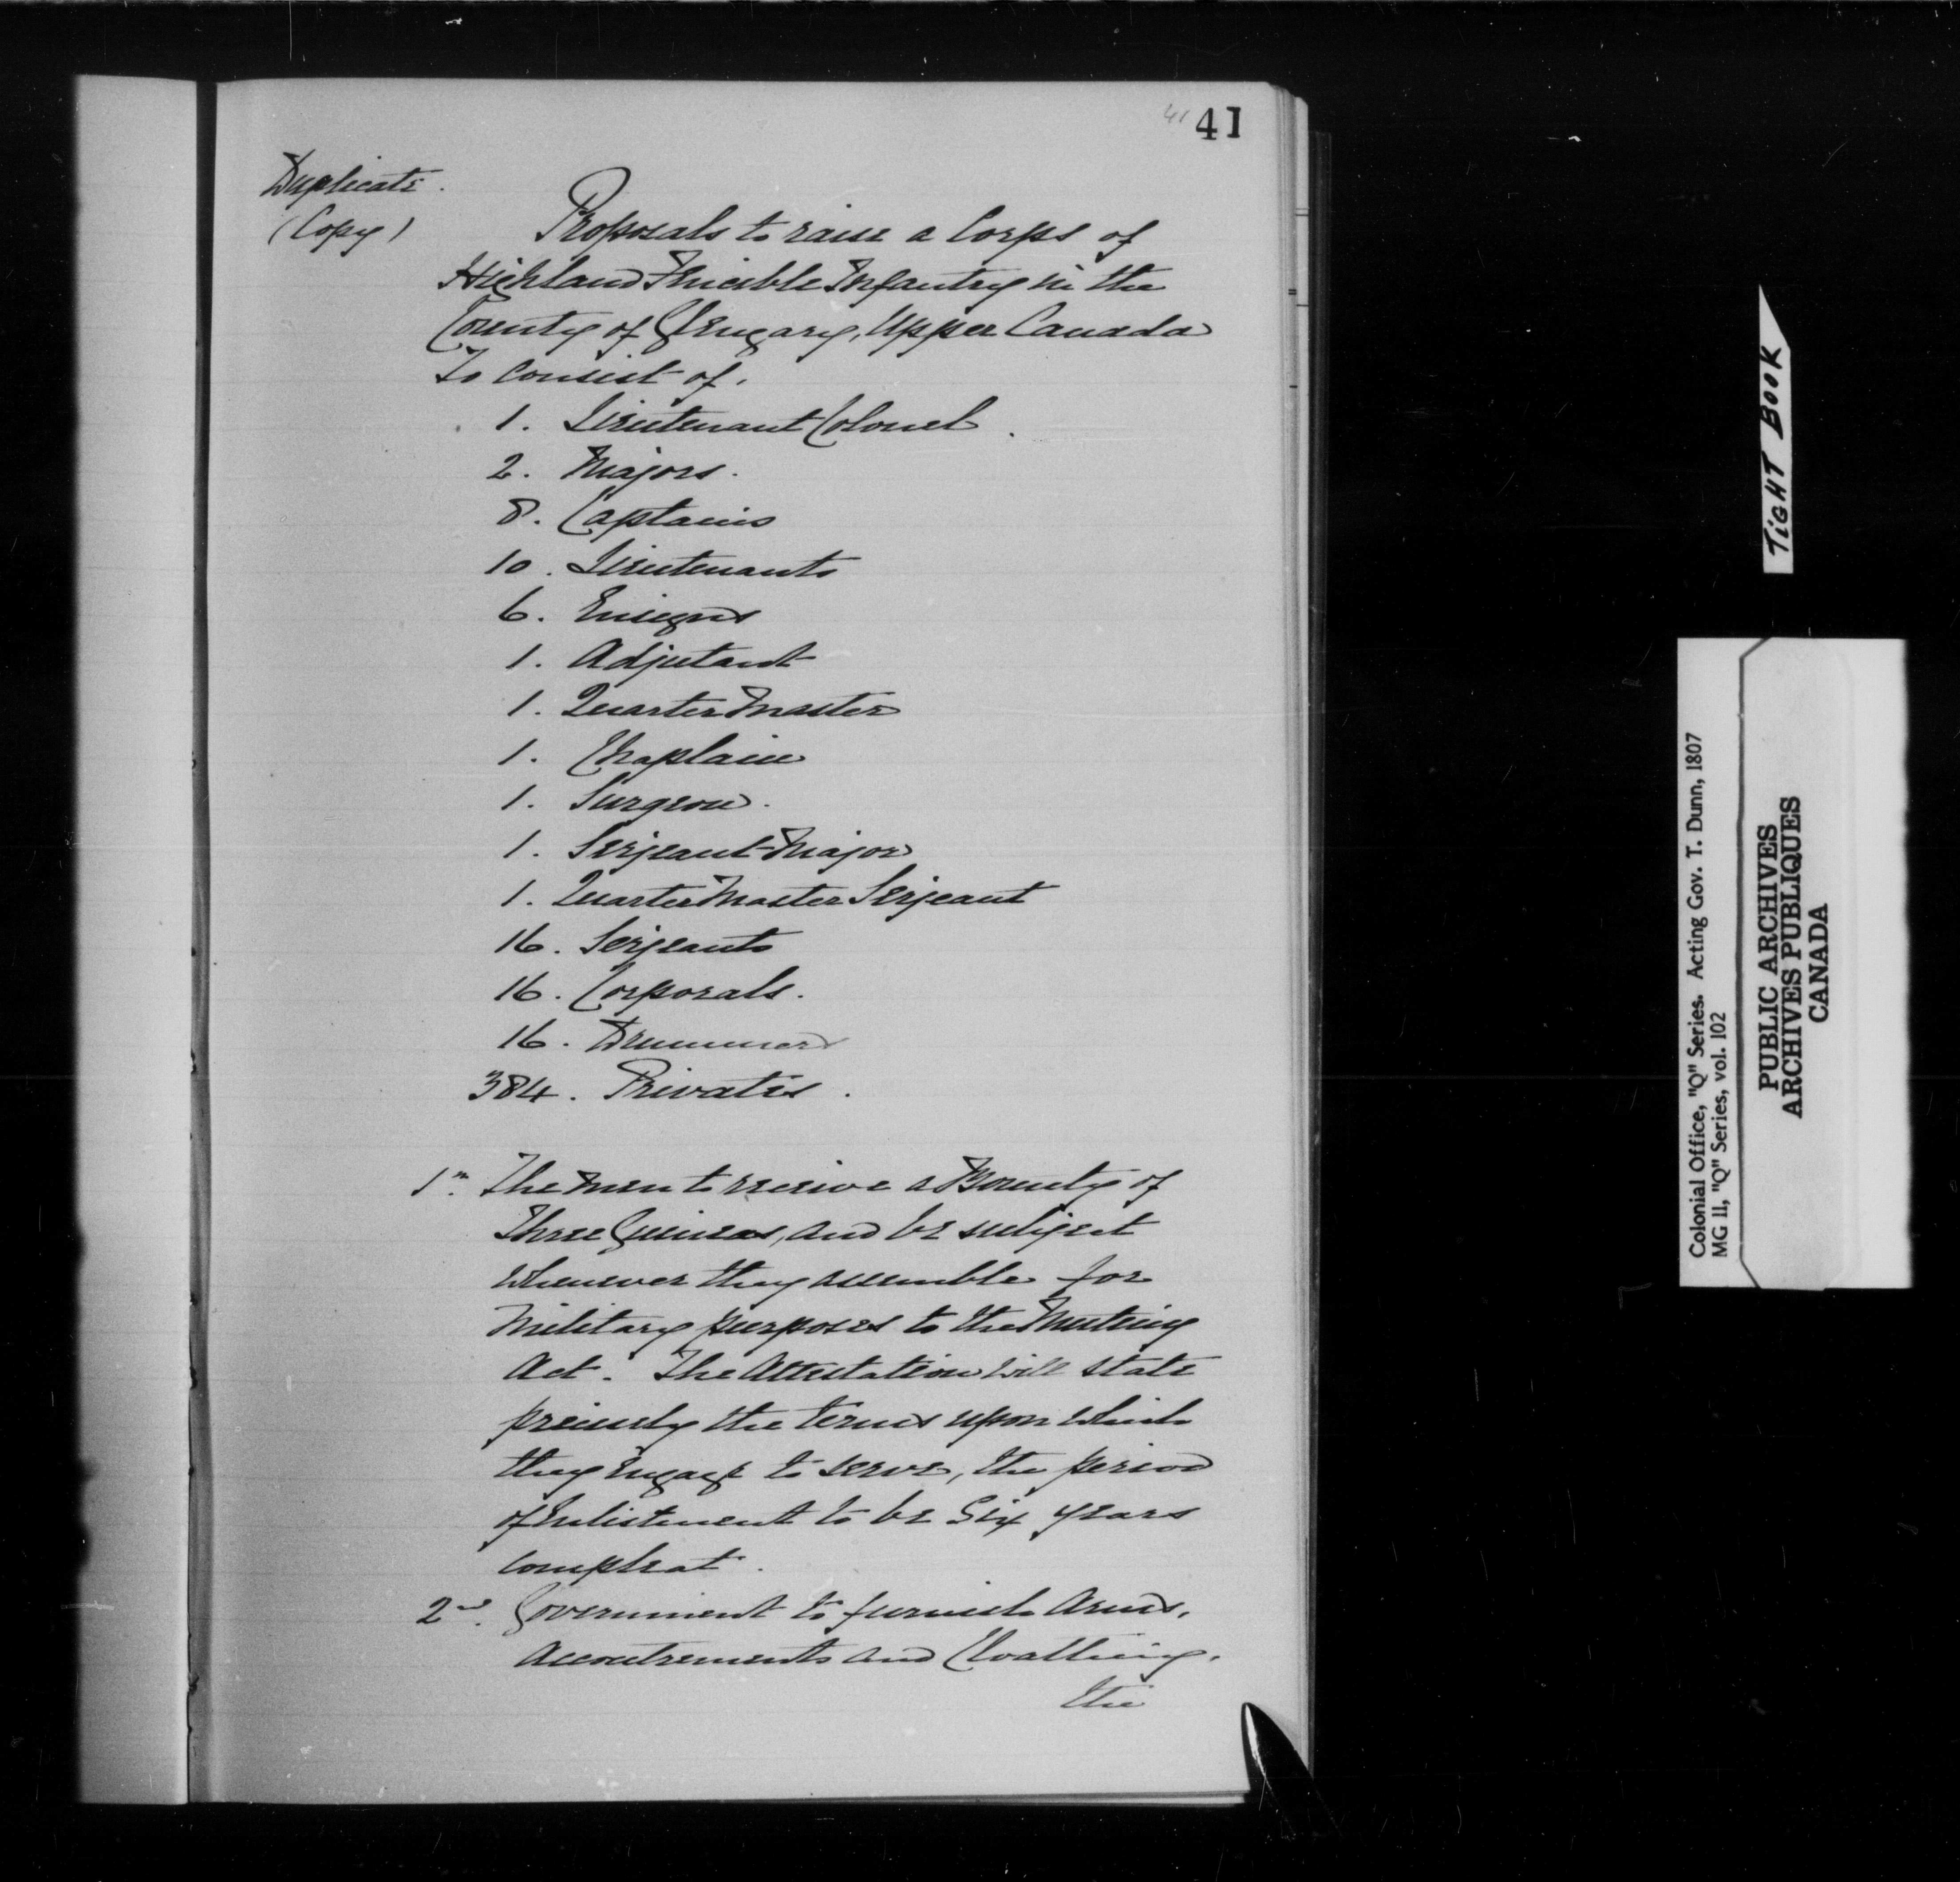 41 41
Duplicate.
(Copy)
Proposals to raise a Corps of
Highland Fencible Infantry in the
County of Glengary, Upper Canada
To Consist of.
1. Lieutenant Colonel.
2. Majors.
8. Captains
10. Lieutenants
6. Ensigns
1. Adjutant
1. Quarter Master
1. Chaplain
1. Surgeon.
1. Serjeant-Major
1. Quarter Master Serjeant
16. Serjeants
16. Corporals.
16. Drummers
384. Privates.
1st. The Men to receive a Bounty of
Three Guineas, and be subject
whenever they assemble for
Military purposes to the Mutiny
Act. The Attestation will state
precisely the terms upon which
they engage to serve, the period
of Enlistment to be Six years
compleat.
2nd. Government to furnish Arms,
Accoutrements and Cloathing,
the
TIGHT BOOK
Colonial Office, "Q" Series. Acting Gov. T. Dunn, 1807
MG 11, "Q" Series, vol. 102
PUBLIC ARCHIVES
ARCHIVES PUBLIQUES
CANADA